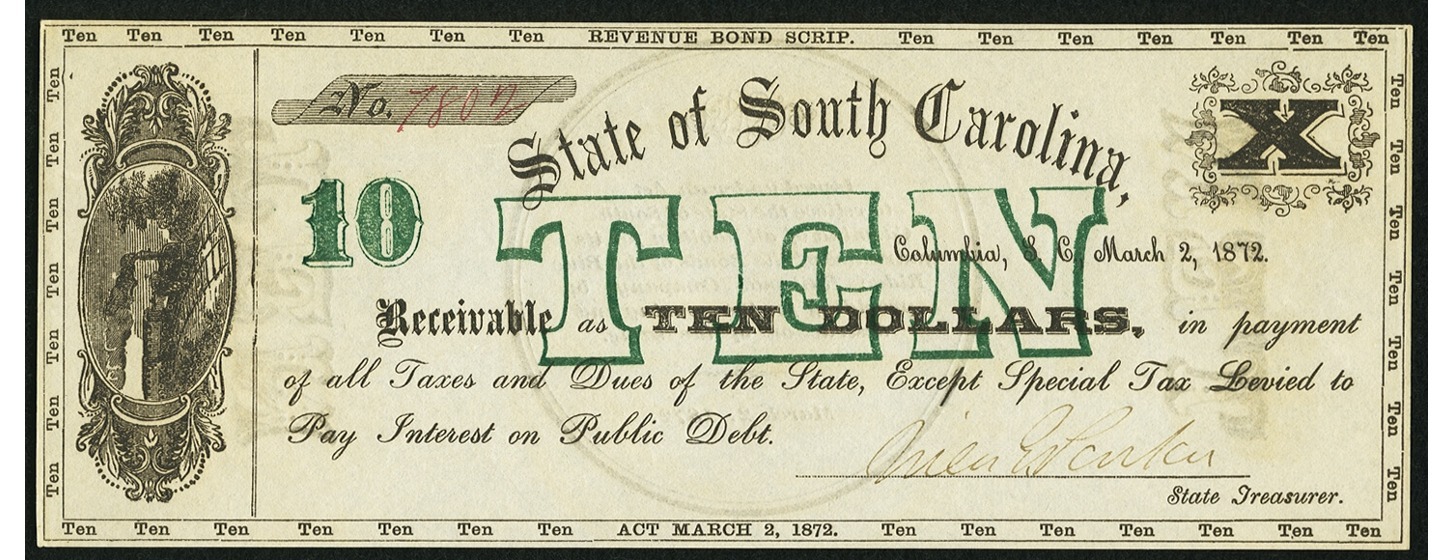 Ten Ten Ten Ten Ten Ten Ten REVENUE BOND SCRIP. Ten Ten Ten Ten Ten Ten Ten
Ten Ten Ten Ten Ten Ten Ten
No. 7802
State of South Carolina,
X
10
TEN
Columbia, S. C., March 2, 1872.
Receivable as TEN DOLLARS, in payment
of all Taxes and Dues of the State, Except Special Tax Levied to
Pay Interest on Public Debt.
Niles G Parker
State Treasurer.
Ten Ten Ten Ten Ten Ten Ten
Ten Ten Ten Ten Ten Ten Ten ACT MARCH 2, 1872. Ten Ten Ten Ten Ten Ten Ten